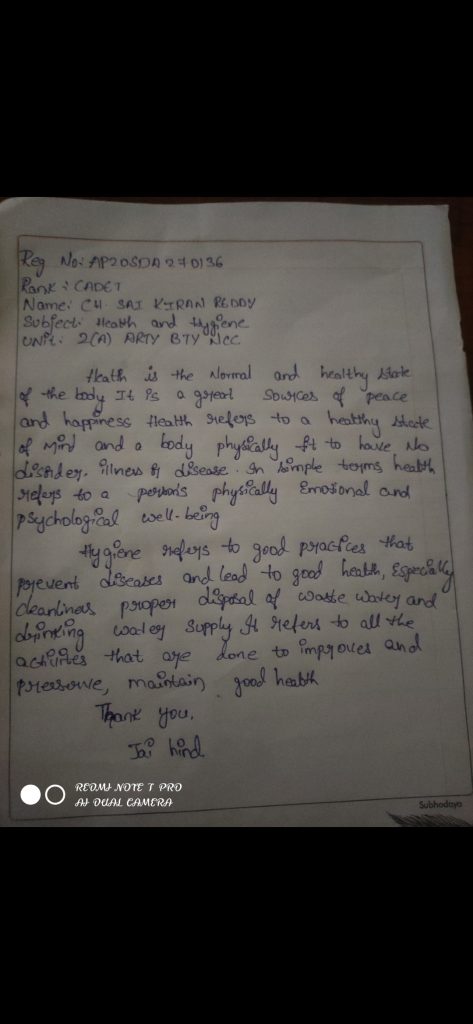 Reg No: AP20SDA270136
Rank: CADET
Name: CH. SAI KIRAN REDDY
Subject: Health and Hygiene
UNit: 2(A) ARTY BTY NCC
Heath is the Normal and healthy state
of the body It is a great sources of peace
and happiness Health refers to a healthy state
of mind and a body physically fit to have No
disorder. illness of disease. In simple terms health
refers to a person's physically Emotional and
psychological well-being
Hygiene refers to good practices that
prevent diseases and lead to good health, Especially
cleanliness proper disposal of waste water and
drinking water supply It refers to all the
activites that are done to improves and
preserve, maintain good health
Thank you.
Jai hind
REDMI NOTE 7 PRO
AI DUAL CAMERA
Subhodaya